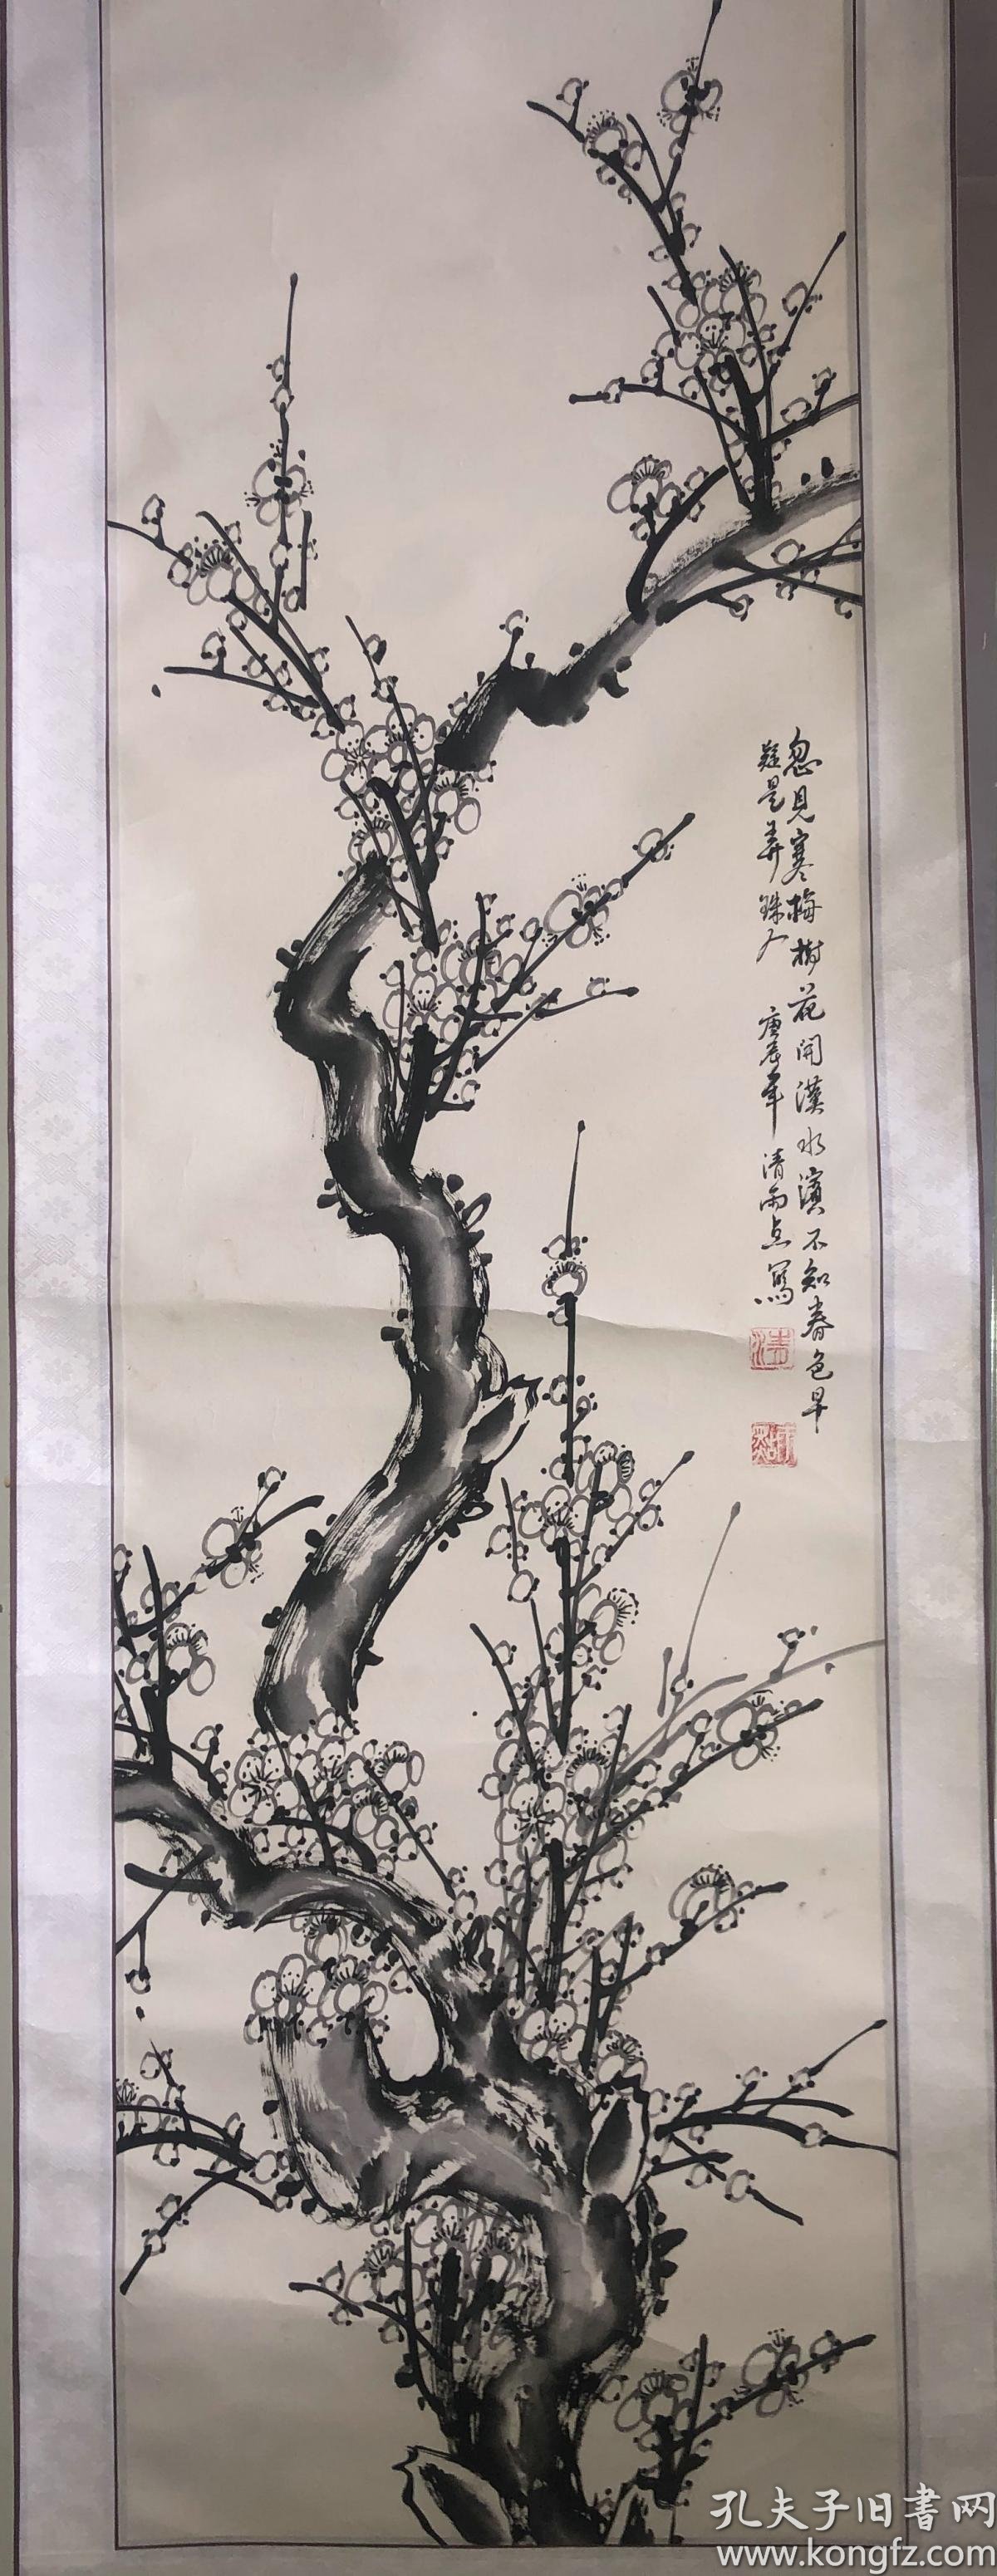 忽見寒梅樹花開漢水濱不知春色早
疑是弄珠人 庚辰年 清雨点寫
清
孔夫子旧書网
www.kongfz.com